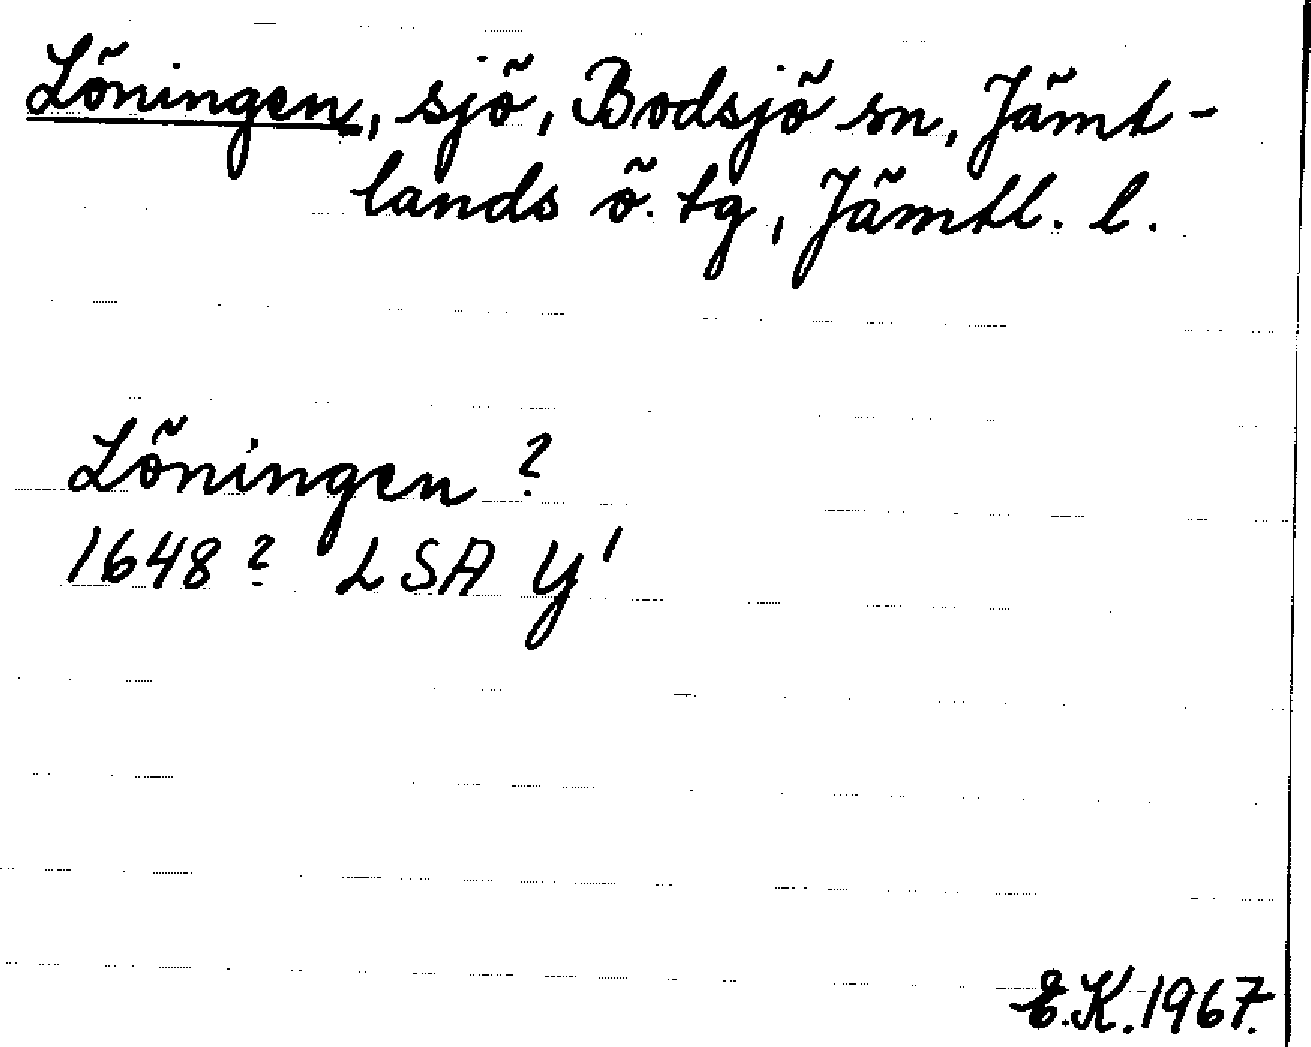 Löningen, sjö, Bodsjö sn, Jämt-
lands ö. tg, Jämtl. l.
Löningen ?
1648? LSA Y1
E.K. 1967.